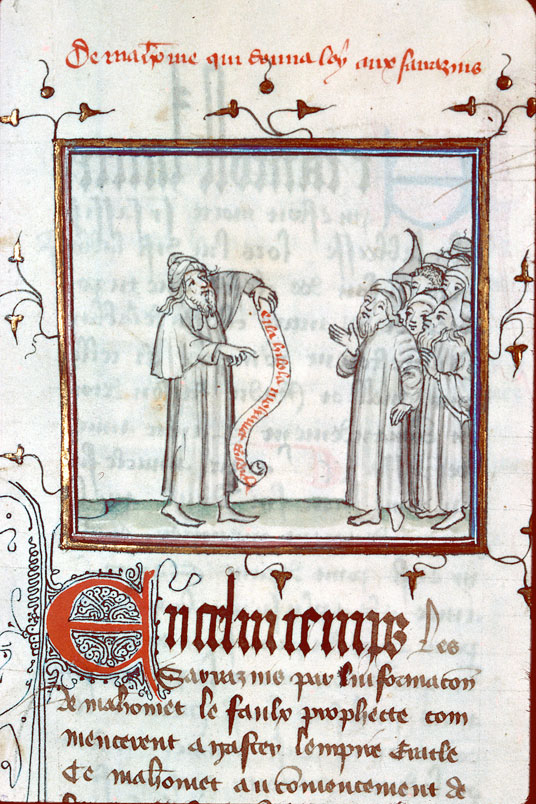 De mahome qui donna loy aux sarrazins
En celui temps Les
Sarrazins par lui formacon
de mahomet le faulx prophecte com
mencerent a gaster lempire Eracle
Ce mahomet au comencement de